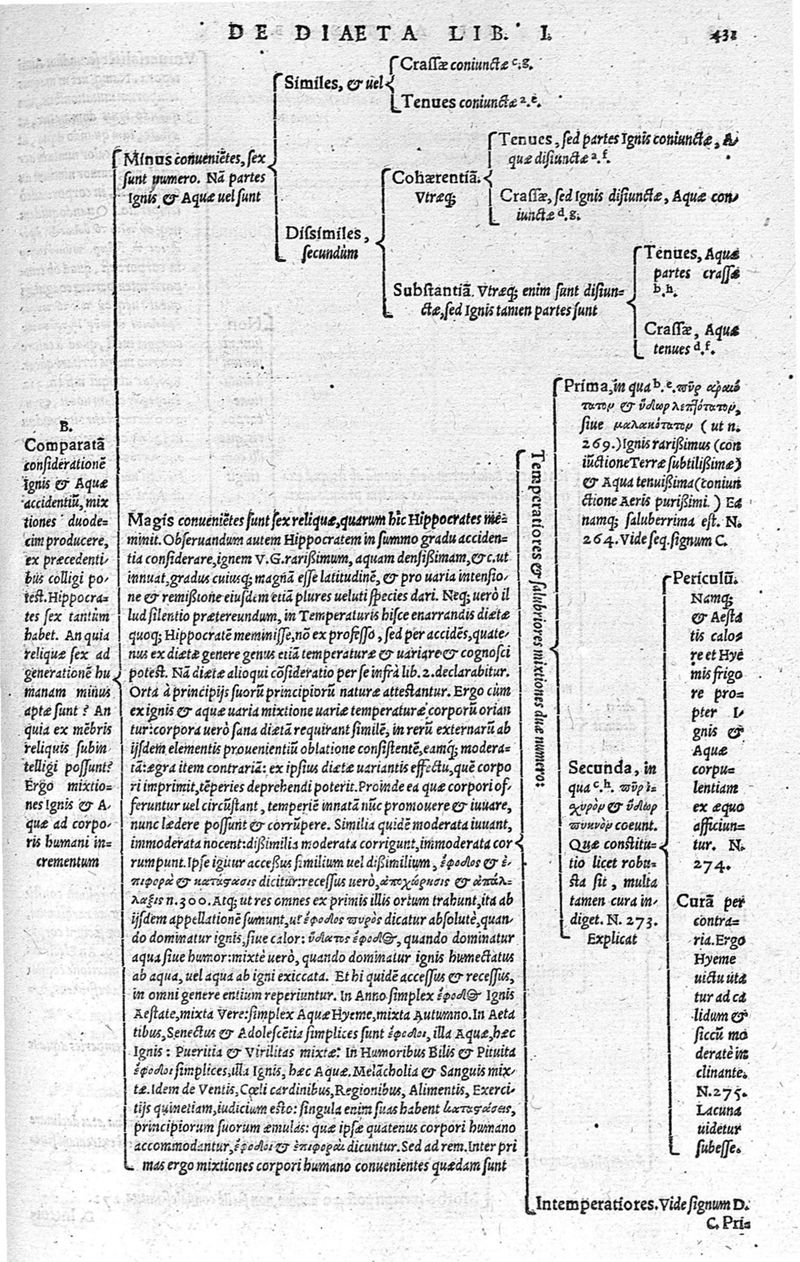 DE DIAETA LIB. I. 431
B.
Comparatā
consideratione
Ignis & Aquæ
accidentiū, mix
tiones duode-
cim producere,
ex præcedenti-
bus colligi po-
test. Hippocra-
tes sex tantùm
habet. An quia
reliquæ sex ad
generationē hu
manam minus
aptæ sunt? An
quia ex mēbris
reliquis subin
telligi possunt?
Ergo mixtio-
nes Ignis & A-
quæ ad corpo-
ris humani in-
crementum
Minus conueniētes, sex
sunt numero. Nā partes
Ignis & Aquæ uel sunt
Similes, & uel
Crassæ coniunctæ c.g.
Tenues coniunctæ a.e.
Dissimiles,
secundùm
Cohærentiā.
Vtræq;
Tenues, sed partes Ignis coniunctæ, A-
quæ disiunctæ a.f.
Crassæ, sed Ignis disiunctæ, Aquæ con-
iunctæ d.g.
Substantiā. Vtræq; enim sunt disiun-
ctæ, sed Ignis tamen partes sunt
Tenues, Aquæ
partes crassæ
b.h.
Crassæ, Aquæ
tenues d.f.
Magis conueniētes sunt sex reliquæ, quarum hîc Hippocrates me-
minit. Obseruandum autem Hippocratem in summo gradu acciden-
tia considerare, ignem V.G. rarißimum, aquam densißimam, &c. ut
innuat, gradus cuiusq; magnā esse latitudinē, & pro uaria intensio-
ne & remißione eiusdem etiā plures ueluti species dari. Neq; uerò il
lud silentio prætereundum, in Temperaturis hisce enarrandis diætæ
quoq; Hippocratē meminisse, nō ex professo, sed per accidēs, quate-
nus ex diætæ genere genus etiā temperaturæ & uariare & cognosci
potest. Nā diætæ alioqui cōsideratio per se infrà lib. 2. declarabitur.
Orta à principijs suorū principiorū naturæ attestantur. Ergo cùm
ex ignis & aquæ uaria mixtione uariæ temperaturæ corporū orian
tur: corpora uerò sana diætā requirant similē, in rerū externarū ab
ijsdem elementis prouenientiū oblatione consistentē, eamq; modera-
tā: ægra item contrariā: ex ipsius diætæ uariantis effectu, quē corpo
ri imprimit, tēperies deprehendi poterit. Proinde ea quæ corpori of-
feruntur uel circūstant, temperiē innatā nūc promouere & iuuare,
nunc lædere possunt & corrūpere. Similia quidē moderata iuuant,
immoderata nocent: dißimilia moderata corrigunt, immoderata cor
rumpunt. Ipse igitur accessus similium uel dißimilium, ἔφοδος & ἐ-
πιφορὰ & κατάστασις dicitur: recessus uerò, ἀποχώρησις & ἀπάλ-
λαξις n. 300. Atq; ut res omnes ex primis illis ortum trahunt, ita ab
ijsdem appellationē sumunt, ut ἔφοδος πυρὸς dicatur absolutè, quan-
do dominatur ignis, siue calor: ὕδατος ἔφοδος, quando dominatur
aqua siue humor: mixtè uerò, quando dominatur ignis humectatus
ab aqua, uel aqua ab igni exiccata. Et hi quidē accessus & recessus,
in omni genere entium reperiuntur. In Anno simplex ἔφοδος Ignis
Aestate, mixta Vere: simplex Aquæ Hyeme, mixta Autumno. In Aeta
tibus, Senectus & Adolescētia simplices sunt ἔφοδοι, illa Aquæ, hæc
Ignis: Pueritia & Virilitas mixtæ: In Humoribus Bilis & Pituita
ἔφοδοι simplices, illa Ignis, hæc Aquæ. Melācholia & Sanguis mix-
tæ. Idem de Ventis, Cœli cardinibus, Regionibus, Alimentis, Exerci-
tijs quinetiam, iudicium esto: singula enim suas habent καταστάσεις,
principiorum suorum æmulas: quæ ipsæ quatenus corpori humano
accommodantur, ἔφοδοι & ἐπιφοραὶ dicuntur. Sed ad rem. Inter pri
mas ergo mixtiones corpori humano conuenientes quædam sunt
Temperatiores & salubriores mixtiones duæ numero:
Prima, in qua b.e. πῦρ ἀραιό
τατον & ὕδωρ λεπτότατον,
siue μαλακότατον (ut n.
269.) Ignis rarißimus (con
iūctione Terræ subtilißimæ)
& Aqua tenuißima (coniun
ctione Aeris purißimi.) Ea
namq; saluberrima est. N.
264. Vide seq. signum C.
Secunda, in
qua c.h. πῦρ ἰσ-
χυρὸν & ὕδωρ
πυκνὸν coeunt.
Quæ constitu-
tio licet robu-
sta sit, multa
tamen cura in-
diget. N. 273.
Explicat
Periculū.
Namq;
& Aesta
tis calo-
re et Hye
mis frigo
re pro-
pter I-
gnis &
Aquæ
corpu-
lentiam
ex æquo
afficiun-
tur. N.
274.
Curā per
contra-
ria. Ergo
Hyeme
uictu utā
tur ad ca
lidum &
siccū mo
deratè in
clinante.
N. 275.
Lacuna
uidetur
subesse.
Intemperatiores. Vide signum D.
C. Pri-